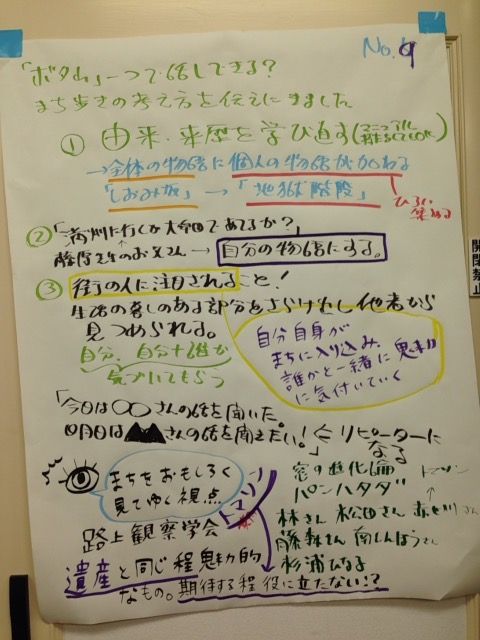 No.9
「ボタン」一つで話しできる？
まち歩きの考え方を伝えにきました
① 由来・来歴を学び直す
→全体の物語に個人の物語が加わる
「しおみ坂」→「地獄階段」
ひろい集める
②「満州に行くか大今田であてるか？」
藤原先生のお父さん → 自分の物語にする。
③ 街の人に注目されること！
生活の暮しのある部分をさらけ出し他者から
見つめられる。
自分、自分+誰か
気づいてもらう
自分自身が
まちに入り込み、
誰かと一緒に魅力
に気付いていく
「今日は〇〇さんの話を聞いた。
四月日は さんの話を聞きたい！」⇐リピーターに
なる
まちをおもしろく
見てゆく視点
路上観察学会
窓の進化論
パンハタダ
トマソン
林さん 松田さん 赤せ川さん
藤森さん 南しんぼうさん
杉浦ひな子
遺産と同じ程魅力的
なもの。期待する程役に立たない！？
開閉禁止